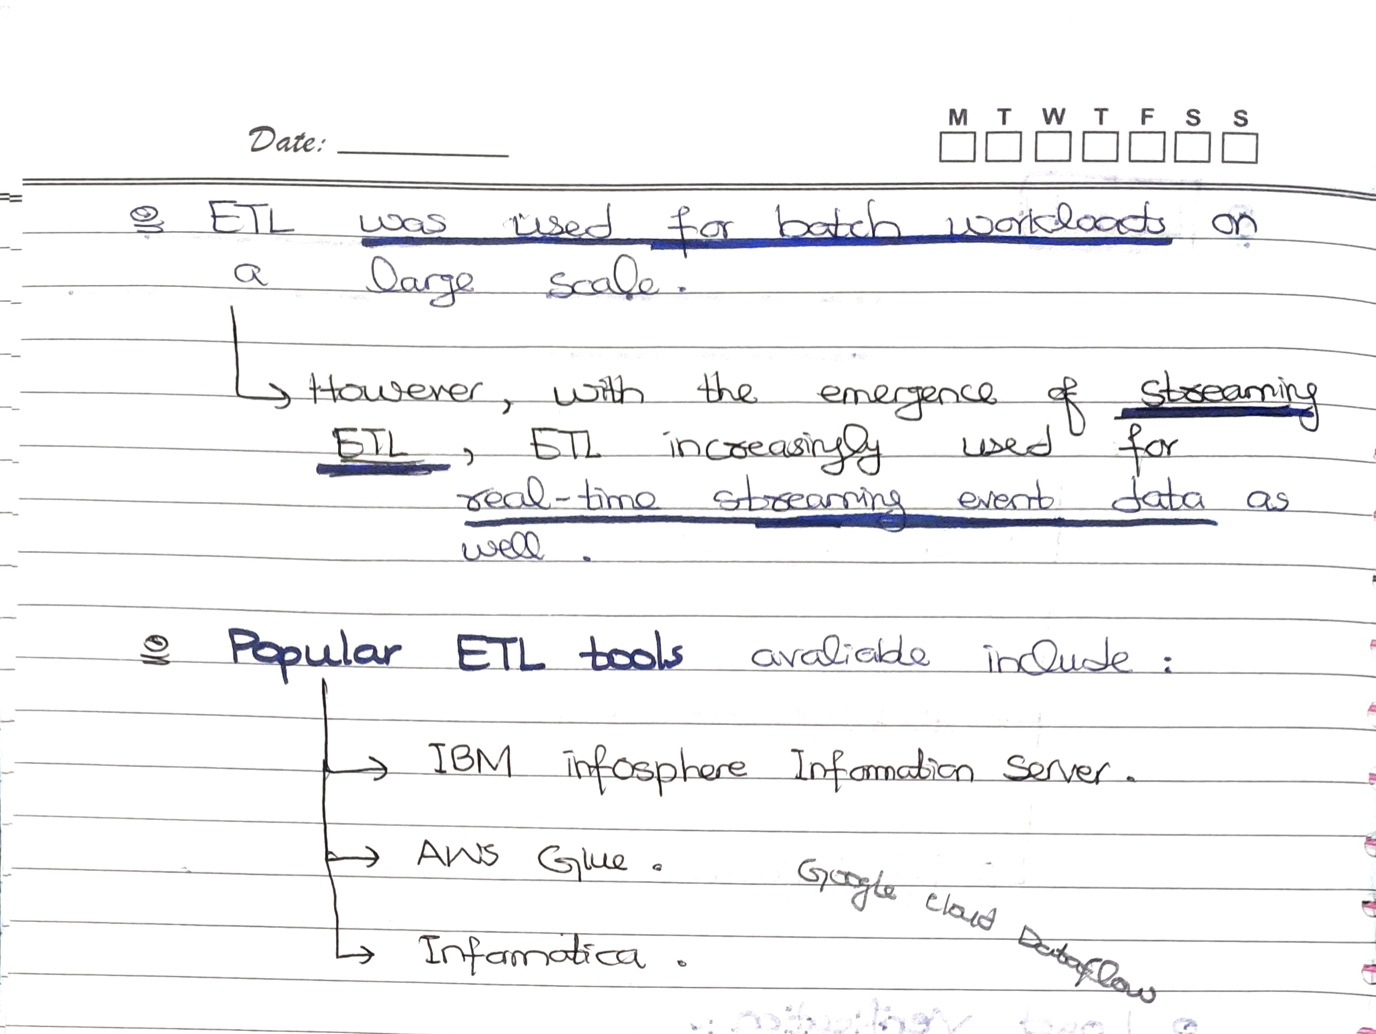 M T W T F S S
Date:
ETL was used for batch workloads on
a large scale.
However, with the emergence of streaming
ETL, ETL increasingly used for
real-time streaming event data as
well.
Popular ETL tools avaliable include:
IBM infosphere Information Server.
AWS Glue.
Google Cloud Dataflow
Infomatica.